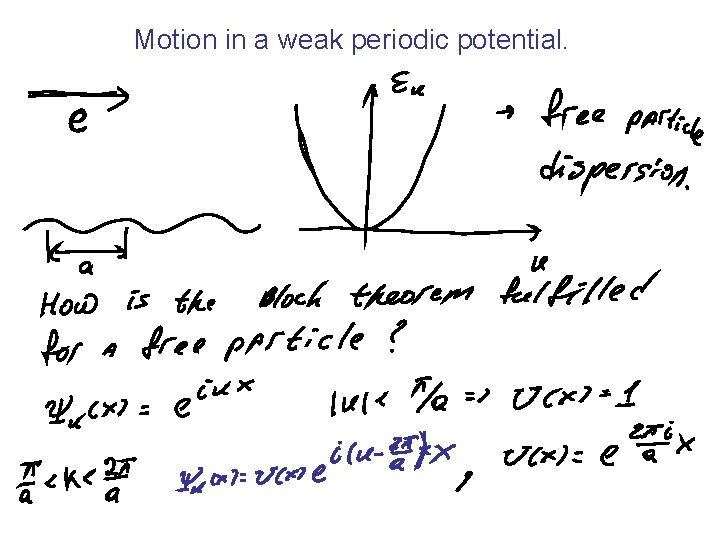 Motion in a weak periodic potential.
e
εₖ
→ free particle
dispersion.
a
k
How is the Bloch theorem fulfilled
for a free particle?
Ψₖ(x) = e^{ikx} |k| < π/a => U(x) = 1
π/a < k < 2π/a Ψₖ(x) = U(x) e^{i(k - 2π/a)x}, U(x) = e^{2πi/a x}